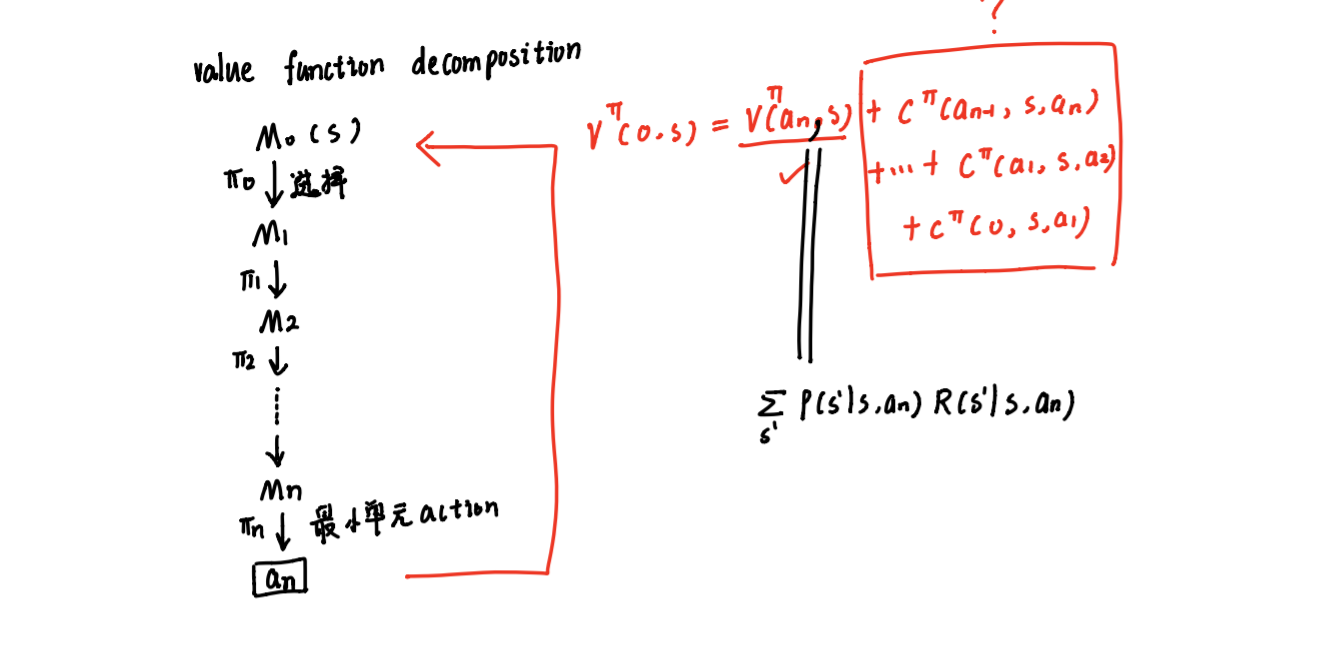 ?
value function decomposition
M₀(s)
π₀ 选择
M₁
π₁
M₂
π₂
Mn
πn 最小单元action
an
V^π(0,s) = V^π(an,s) + C^π(an-1, s, an)
+...+ C^π(a₁, s, a₂)
+ C^π(0, s, a₁)
Σ P(s'|s,an) R(s'|s,an)
s'